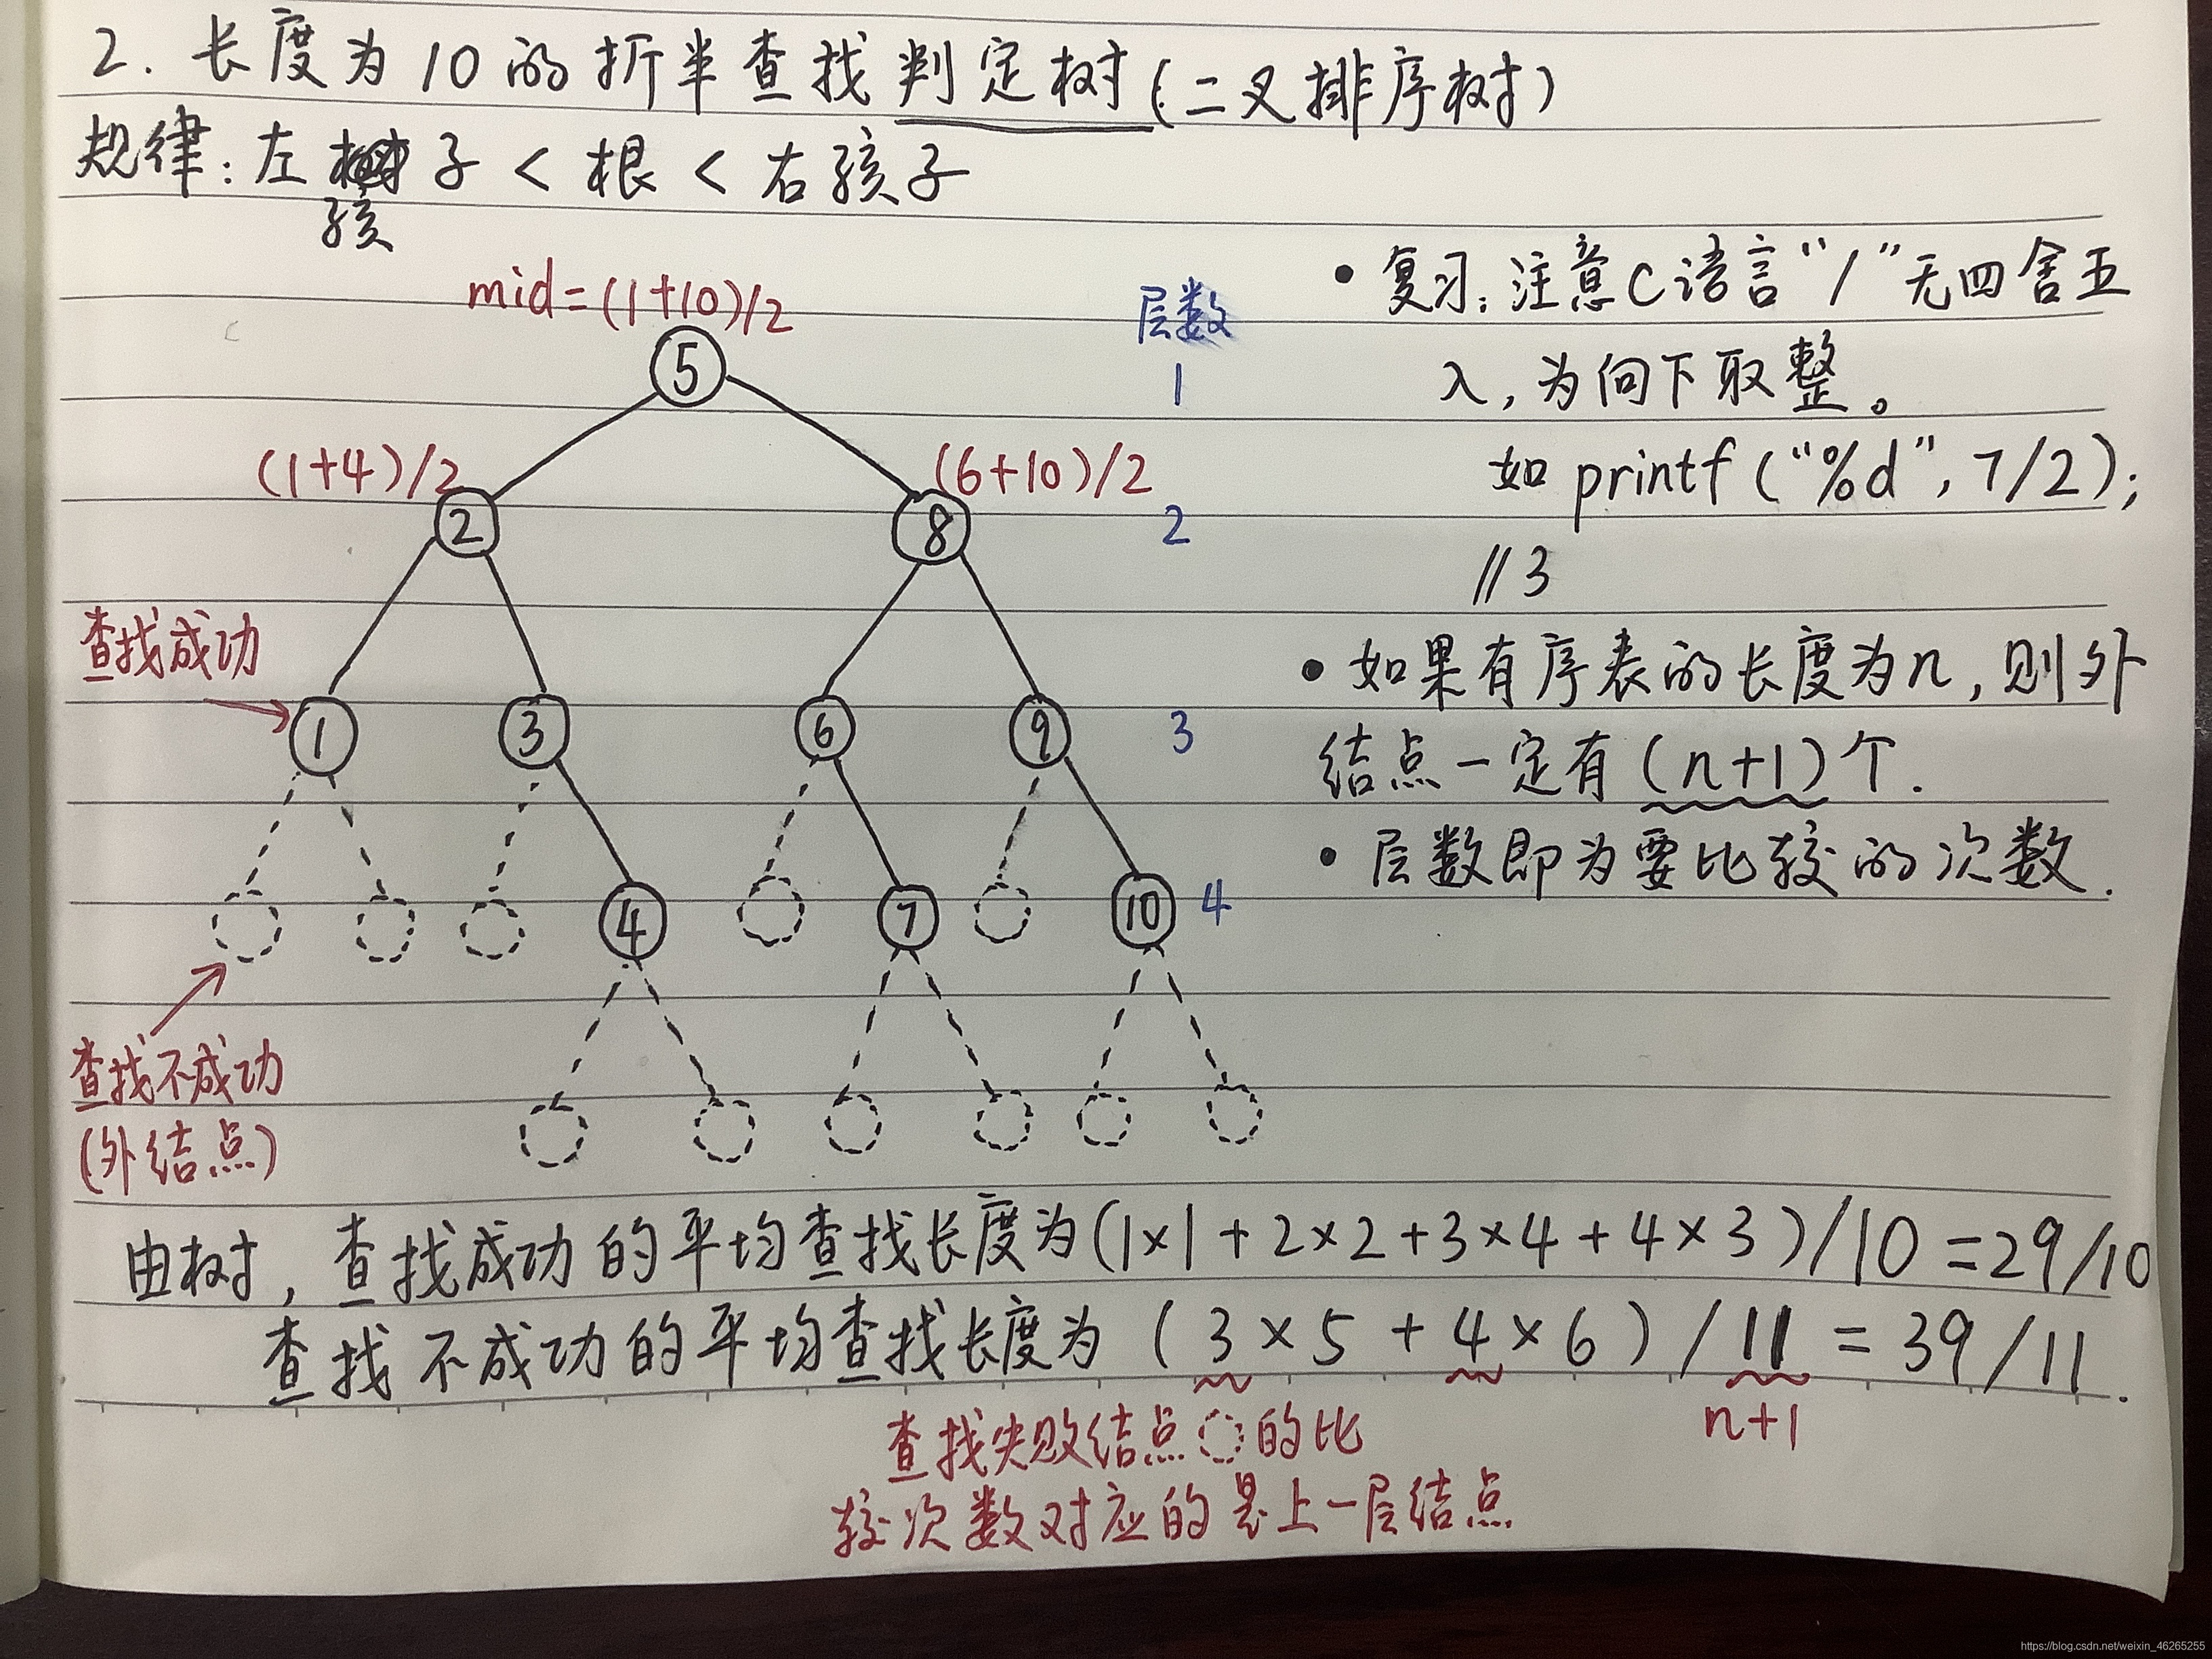 2. 长度为10的折半查找判定树(二叉排序树)
规律:左子<根<右孩子
孩
mid=(1+10)/2
5
层数
1
(1+4)/2
(6+10)/2
2
8
2
查找成功
1
3
6
9
3
4
7
10
4
查找不成功
(外结点)
• 复习:注意C语言“/”无四舍五
入,为向下取整。
如 printf(“%d”, 7/2);
//3
• 如果有序表的长度为n,则外
结点一定有(n+1)个.
• 层数即为要比较的次数.
由树,查找成功的平均查找长度为(1×1+2×2+3×4+4×3)/10=29/10
查找不成功的平均查找长度为(3×5+4×6)/11=39/11.
n+1
查找失败结点的比
较次数对应的是上一层结点
https://blog.csdn.net/weixin_46265255